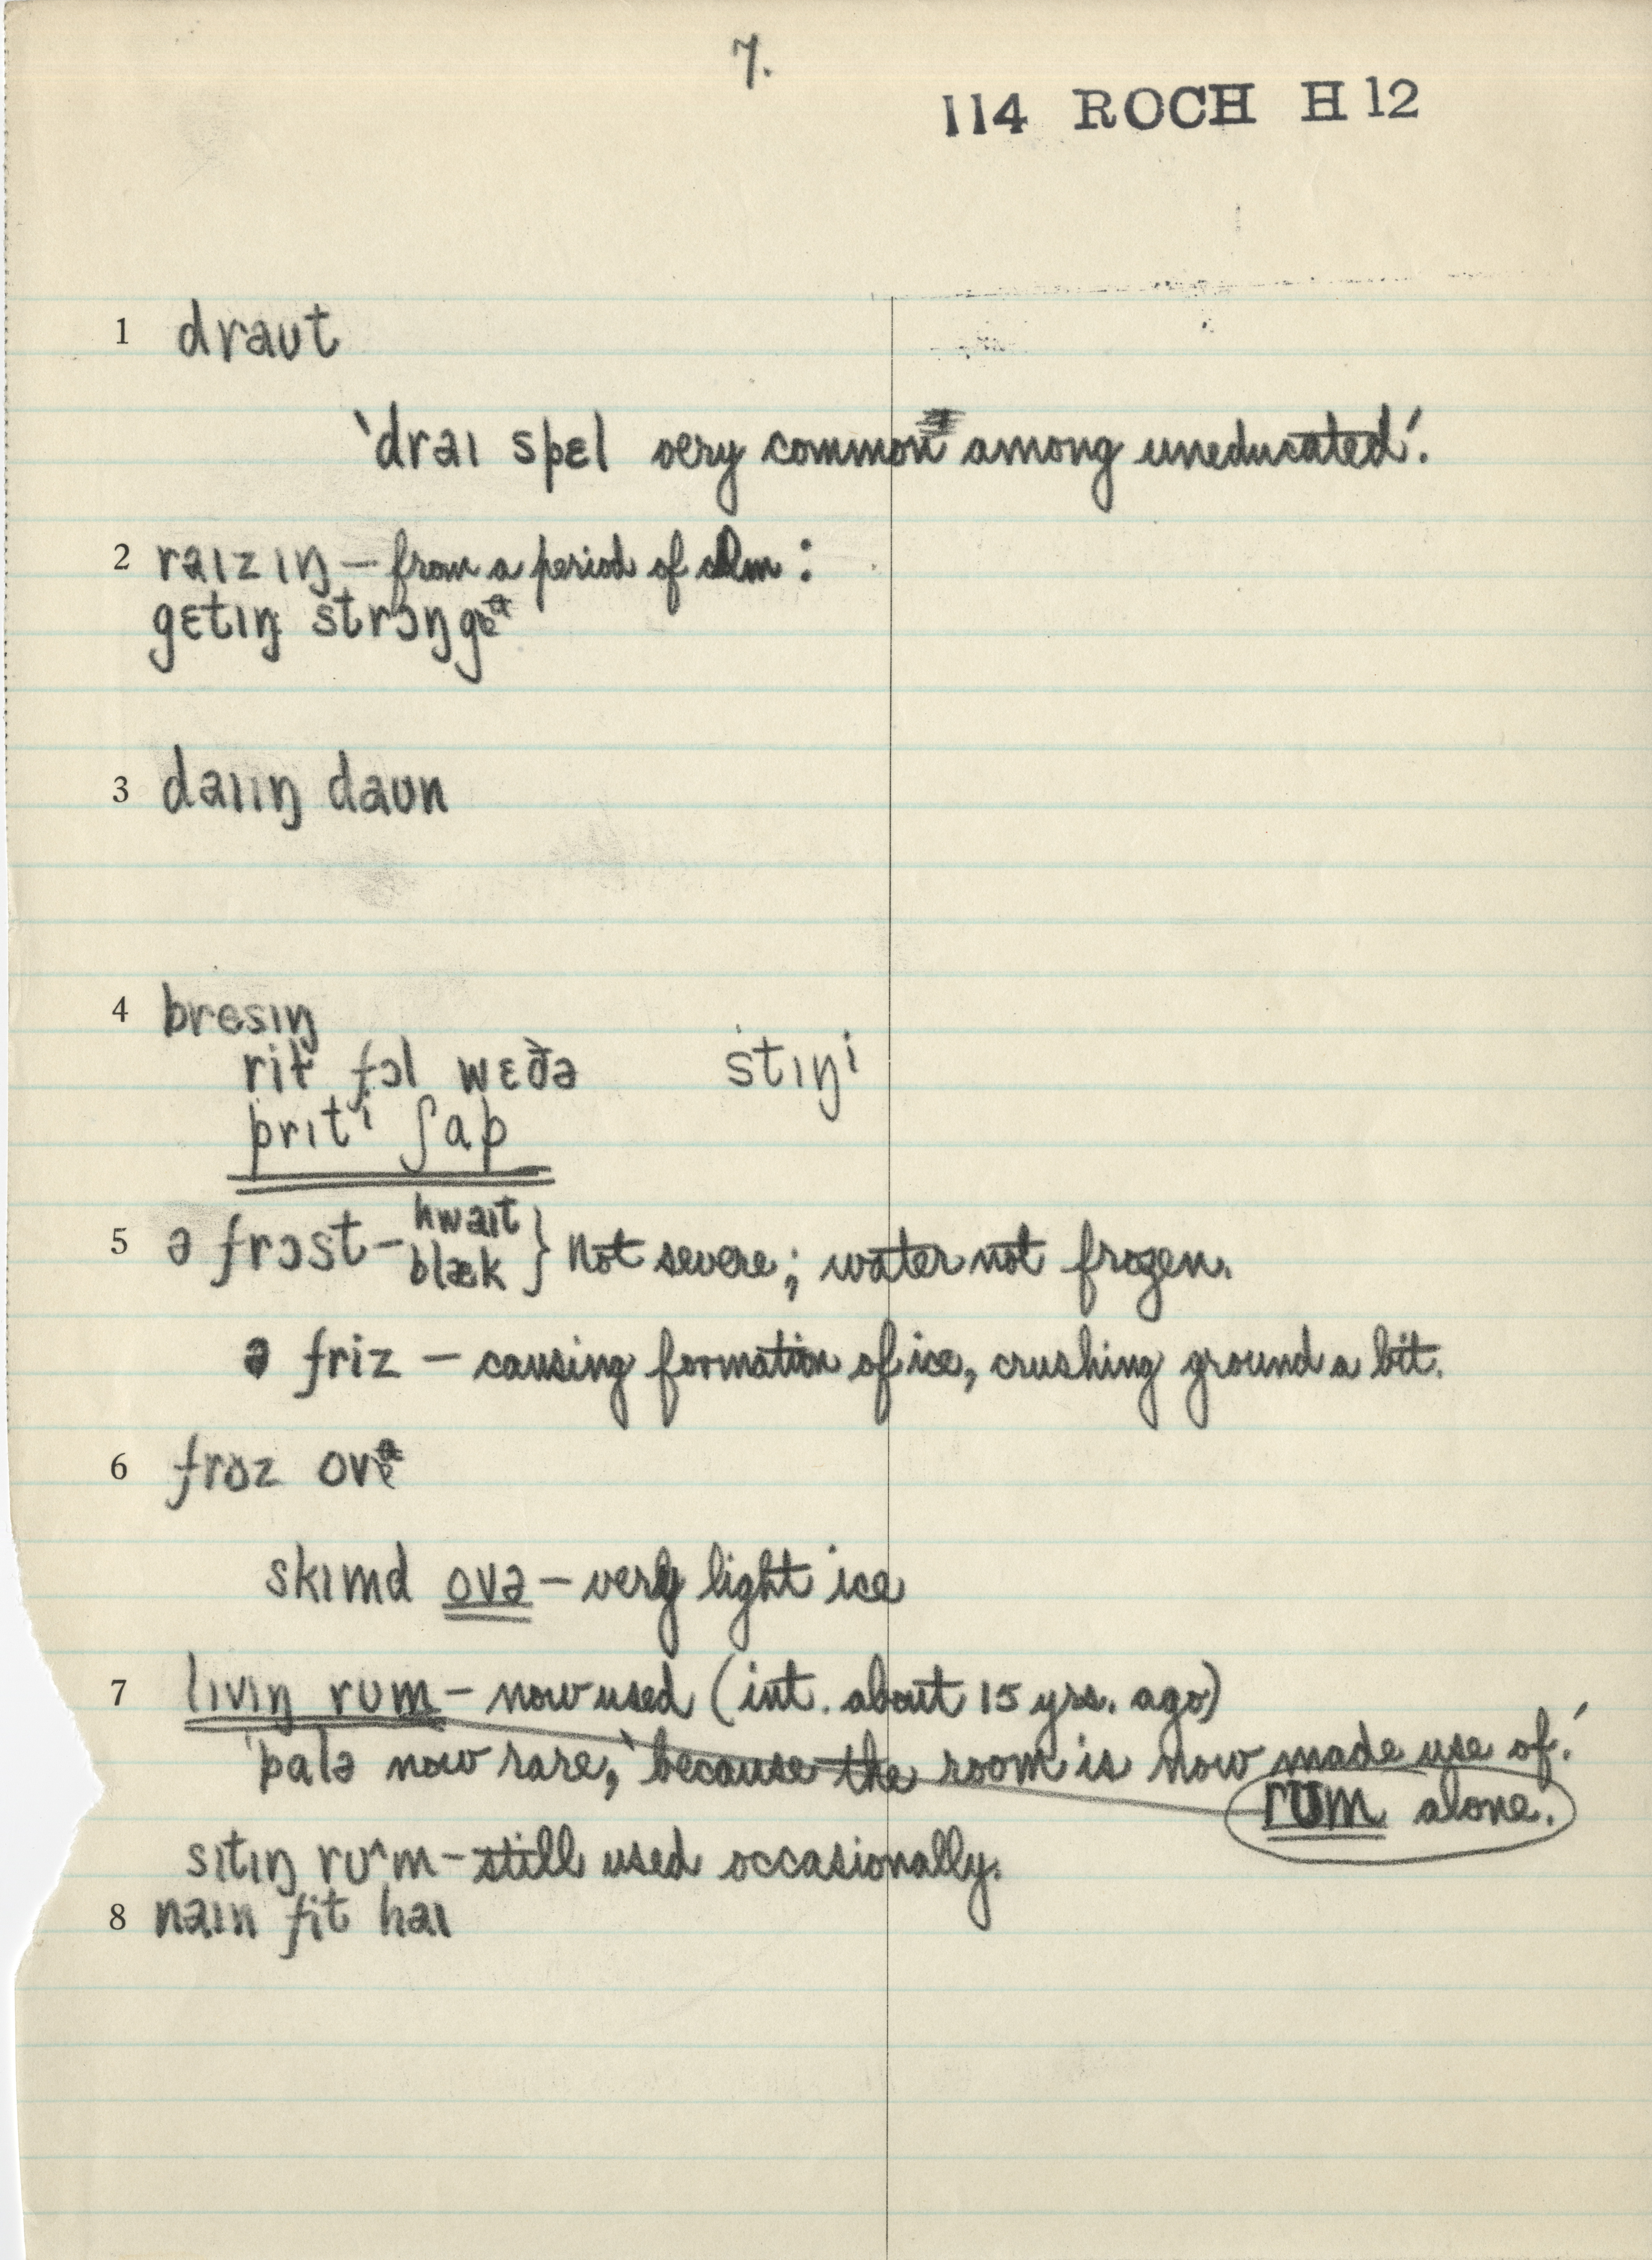 7.
114 ROCH H 12
1 draʊt
'draɪ spɛl very common among uneducated'.
2 raɪzɪŋ – from a period of calm :
gɛtɪŋ strɔŋgɚ
3 daɪɪŋ daʊn
4 bresɪŋ
rit fɔl wɛðə stɪŋi
prɪti ʃap
5 ə frɔst – hwaɪt
blæk } Not severe; water not frozen.
ə friz – causing formation of ice, crushing ground a bit.
6 froz ovɚ
skɪmd ovə – very light ice
7 lɪvɪŋ rʊm – now used (int. about 15 yrs. ago)
'palə now rare, 'because the room is now made use of.'
rʊm alone.
sɪtɪŋ rʊ^m – still used occasionally.
8 naɪn fit haɪ